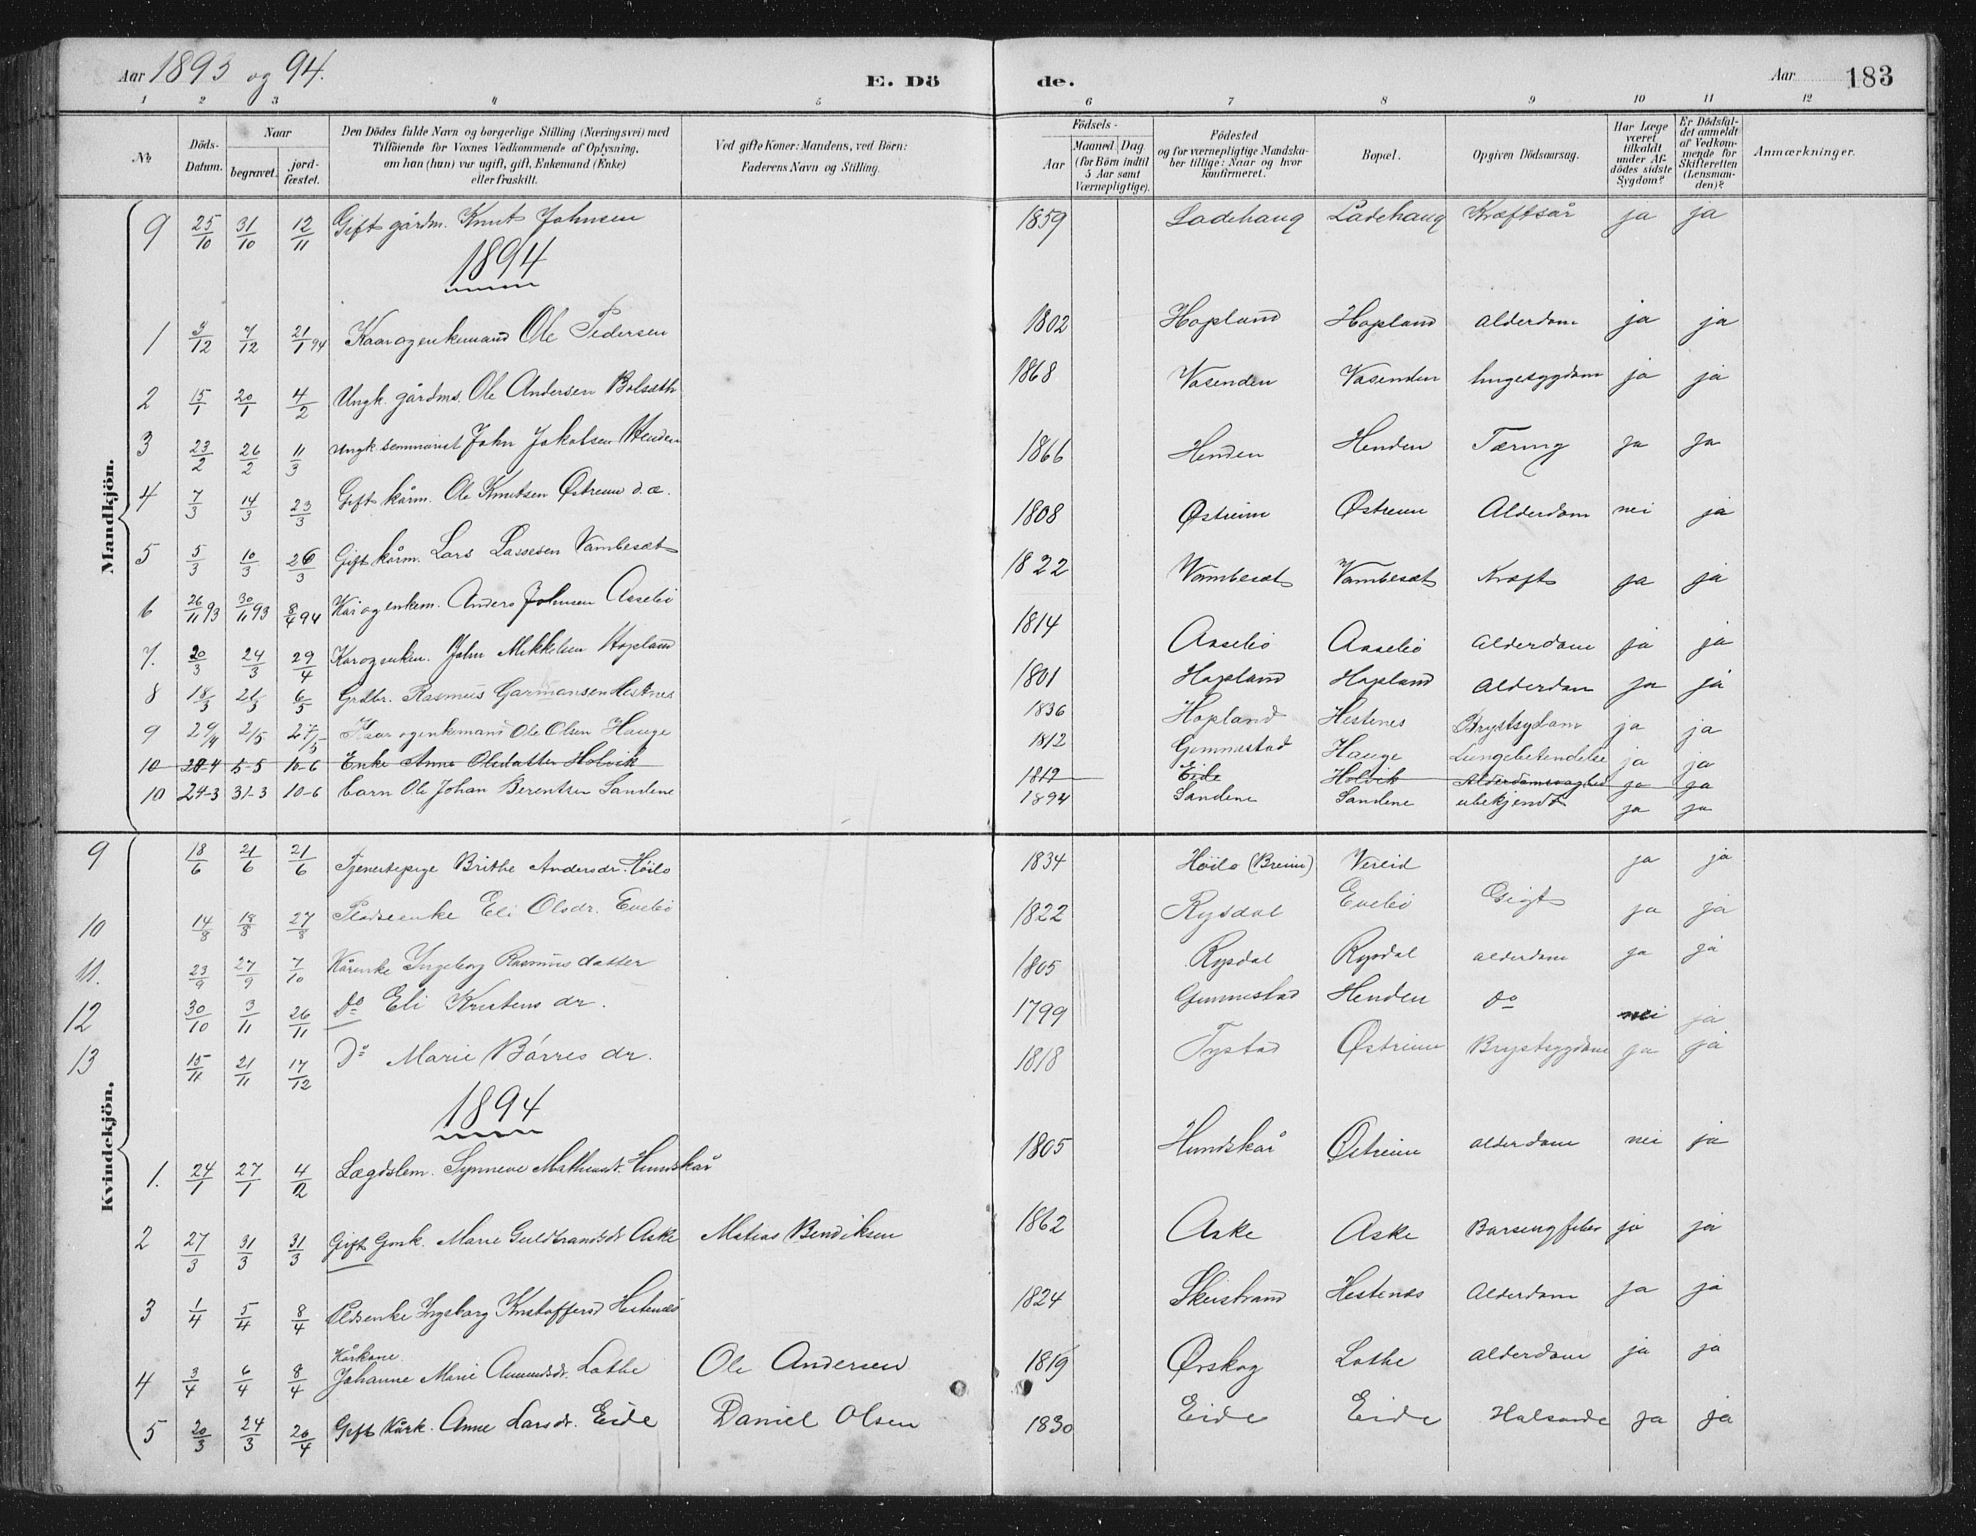 Aar 1893 og 94. E. Dö de. Aar 183
1 2 3 4 5 6 7 8 9 10 11 12
No Döds-Datum. Naar begravet. jord-fæstet. Den Dödes fulde Navn og borgerlige Stilling (Næringsvei) med Tilföiende for Voxnes Vedkommende af Oplysning, om han (hun) var ugift, gift, Enkemand (Enke) eller fraskilt. Ved gifte Koner: Mandens, ved Börn: Faderens Navn og Stilling. Födsels- Aar Maaned Dag (for Börn indtil 5 Aar samt Værnepligtige). Födested og for værnepligtige Mandskaber tillige: Naar og hvor konfirmeret. Bopæl. Opgiven Dödsaarsag. Har Læge været tilkaldt under Afdödes sidste Sygdom? Er Dödsfaldet anmeldt af Vedkommende for Skifteretten (Lensmanden)? Anmærkninger.
Mandkjön.
9 25/10 31/10 12/11 Gift gårdm. Knut Johnsen 1859 Ladehaug Ladehaug Kræftsår ja ja
1894
1 3/12 7/12 21/1 94 Kaarogenkemand Ole Pedersen 1802 Hopland Hopland Alderdom ja ja
2 15/1 20/1 4/2 Ungk. gårdms. Ole Andersen Bolsæth 1868 Vasenden Vasenden lungesygdom ja ja
3 23/2 26/2 11/3 Ungk. seminarist John Jakobsen Henden 1866 Henden Henden Tæring ja ja
4 7/3 14/3 23/3 Gift kårm. Ole Knutsen Østreim d.æ. 1808 Østreim Østreim Alderdom nei ja
5 5/3 10/3 26/3 Gift kårm. Lars Lassesen Vambesæt 1822 Vambesæt Vambesæt Kræft ja ja
6 26/11 93 30/11 93 8/4 94 Karogenkem. Anders Johnsen Aasebø 1814 Aasebø Aasebø Alderdom ja ja
7. 20/3 24/3 29/4 Karogenkem. John Mikkelsen Hopland 1801 Hopland Hopland Alderdom ja ja
8 18/3 21/3 6/5 Grdbr. Rasmus Garmansen Hestnes 1836 Hopland Hestenes Brystsygdom ja ja
9 29/4 2/5 27/5 Kaarogenkemand Ole Olsen Hauge 1812 Gemmestad Hauge Lungebetendelse ja ja
10 28-4 5-5 10-6 Enke Anne Olesdatter Holvik 1812 Eide Holvik Alderdomssvaghed ja ja
10 24-3 31-3 10-6 barn Ole Johan Berentsen Sandene 1894 Sandene Sandene ubekjendt ja ja
Kvindekjön.
9 18/6 21/6 21/6 Tjenestepige Brithe Andersdr. Høilo 1834 Høilo (Breim) Vereid ja ja
10 14/8 18/8 27/8 Pladseenke Eli Olsdr. Evebø 1822 Rysdal Evebø Gigt ja ja
11. 23/9 27/9 7/10 Kårenke Ingeborg Rasmusdatter 1805 Rysdal Rysdal alderdom ja ja
12 30/10 3/11 26/11 do Eli Kristensdr. 1799 Gemmestad Henden do nei ja
13 15/11 21/11 17/12 Do Marie Børresdr. 1818 Tystad Østreim Brystsygdom ja ja
1894
1. 24/1 27/1 4/2 Lægdslem. Synneve Mathiasdr. Hundskår 1805 Hundskår Østreim alderdom nei ja
2 27/3 31/3 31/3 Gift Gmk. Marie Guldbrandsdr Aske Matias Bendiksen 1862 Aske Aske Barsengfeber ja ja
3 1/4 5/4 8/4 Pldsenke Ingeborg Kristoffersd Hestenæs 1824 Skeistrand Hestenæs Alderdom ja ja
4 3/4 6/4 8/4 Kårkone. Johanne Marie Amundsdr. Lothe Ole Andersen 1819 Ørskog Lothe alderdom ja ja
5 20/3 24/3 20/4 Gift Kårk. Anne Larsdr. Eide Daniel Olsen 1830 Eide Eide Halsonde ja ja